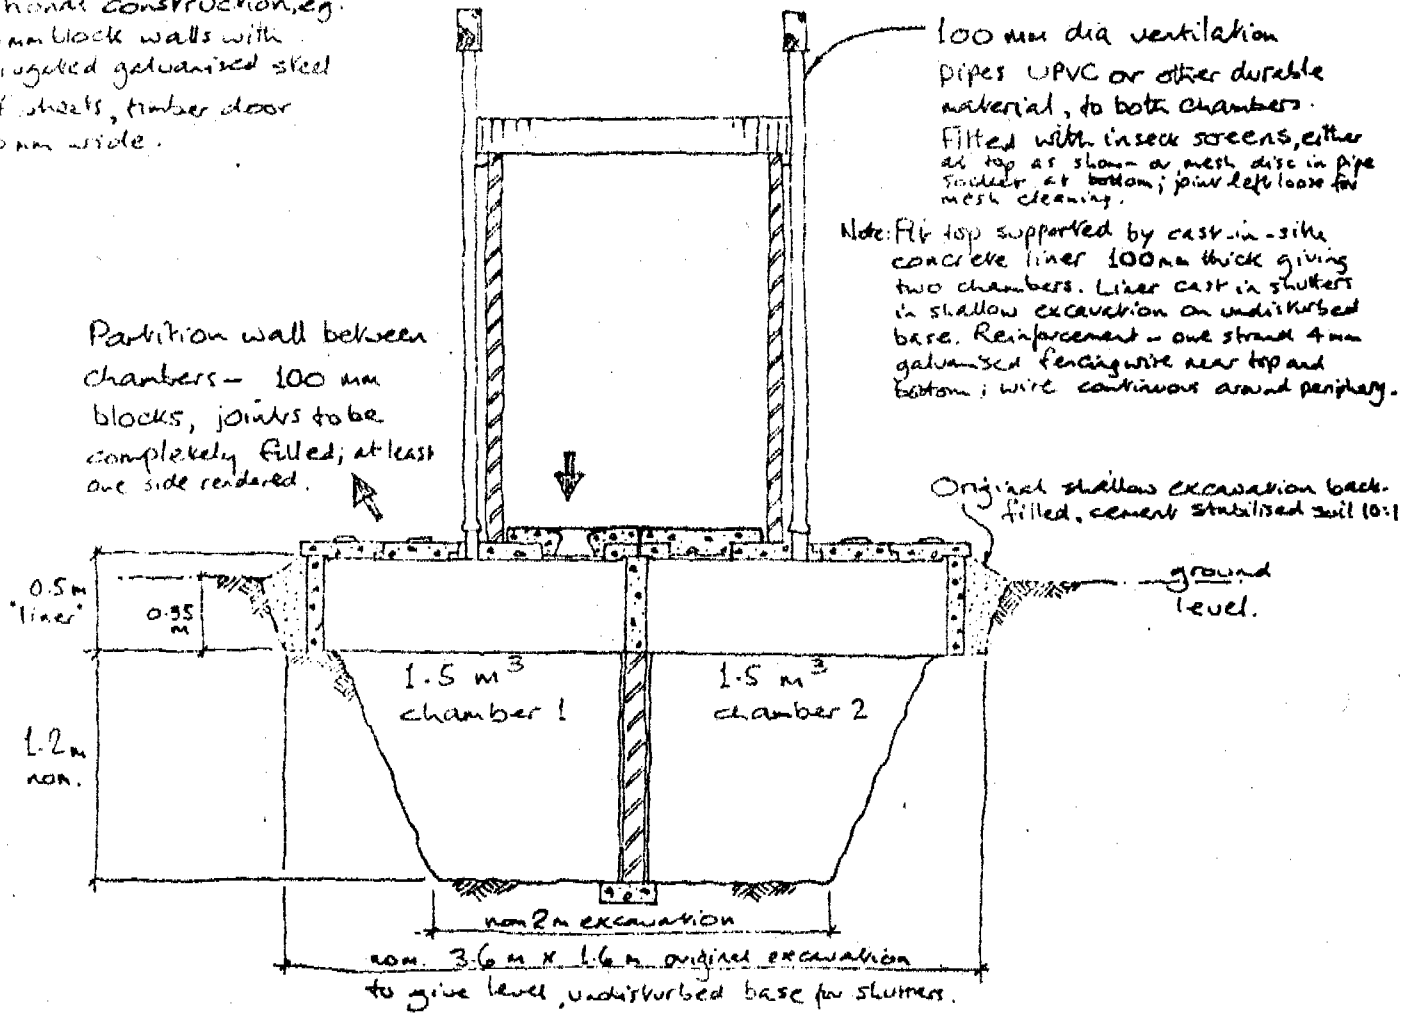 construction, eg.
mm block walls with
galvanised steel
sheets, timber door
mm wide.
100 mm dia ventilation
pipes UPVC or other durable
material, to both chambers.
Fitted with insect screens, either
at top as shown or mesh disc in pipe
socket at bottom; joint left loose for
mesh cleaning.
Note: Pit top supported by cast-in-situ
concrete liner 100mm thick giving
two chambers. Liner cast in shutters
in shallow excavation on undisturbed
base. Reinforcement - one strand 4mm
galvanised fencing wire near top and
bottom; wire continuous around periphery.
Partition wall between
chambers - 100 mm
blocks, joints to be
completely filled; at least
one side rendered.
Original shallow excavation back-
filled, cement stabilised soil 10:1
ground
level.
0.5m
"liner"
0.35
m
1.5 m³
chamber 1
1.5 m³
chamber 2
1.2m
nom.
nom 2m excavation
nom. 3.6 m x 1.6 m original excavation
to give level, undisturbed base for shutters.